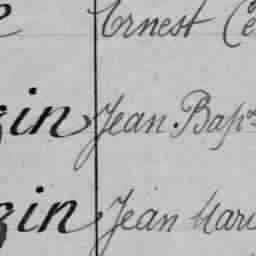 Ernest
zin Jean Bapt
zin Jean Mari